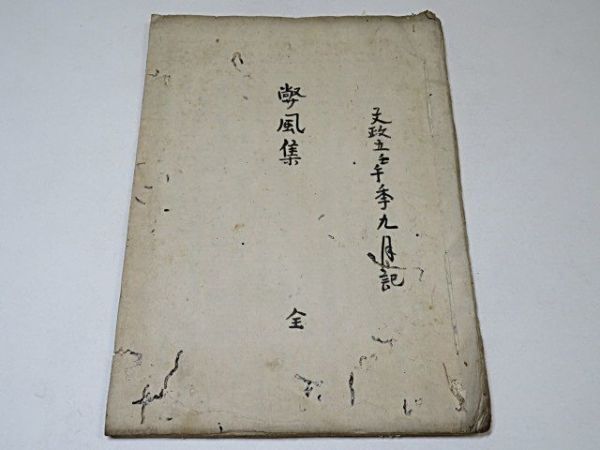 文政五壬午季九月記
風集
全